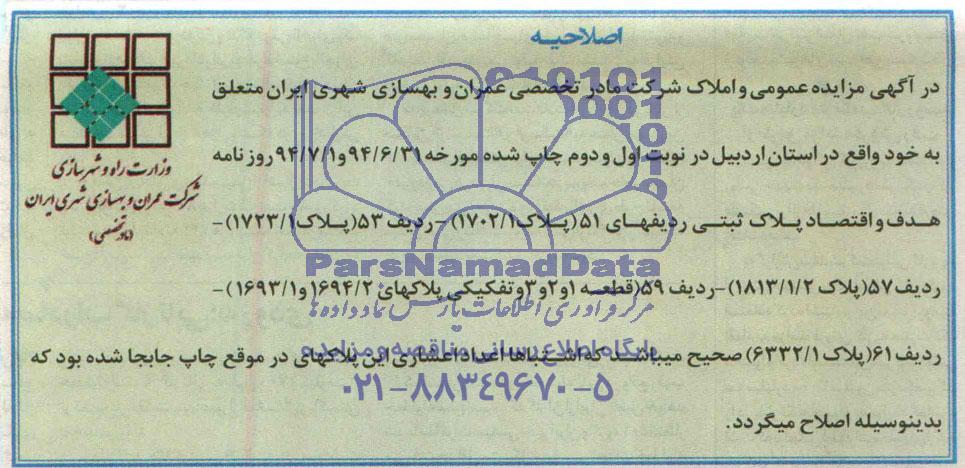 اصلاحیه
در آگهی مزایده عمومی و املاک شرکت مادر تخصصی عمران و بهسازی شهری ایران متعلق
به خود واقع در استان اردبیل در نوبت اول و دوم چاپ شده مورخه ۹۴/۶/۳۱ و ۹۴/۷/۱ روزنامه
هدف و اقتصاد پلاک ثبتی ردیفهای ۵۱ (پلاک ۱۷۰۲/۱) - ردیف ۵۳ (پلاک ۱۷۲۳/۱) -
ردیف ۵۷ (پلاک ۱۸۱۳/۱/۲) - ردیف ۵۹ (قطعه ۱ و ۲ و ۳ و تفکیکی پلاکهای ۱۶۹۴/۲ و ۱۶۹۳/۱) -
ردیف ۶۱ (پلاک ۶۳۳۲/۱) صحیح میباشد که اشتباها اعداد اعشاری این پلاکهای در موقع چاپ جابجا شده بود که
بدینوسیله اصلاح میگردد.
وزارت راه و شهرسازی
شرکت عمران و بهسازی شهری ایران
(مادر تخصصی)
ParsNamadData
مرکز فرآوری اطلاعات پارس نماد داده ها
پایگاه اطلاع رسانی مناقصه و مزایده
۰۲۱-۸۸۳۴۹۶۷۰-۵